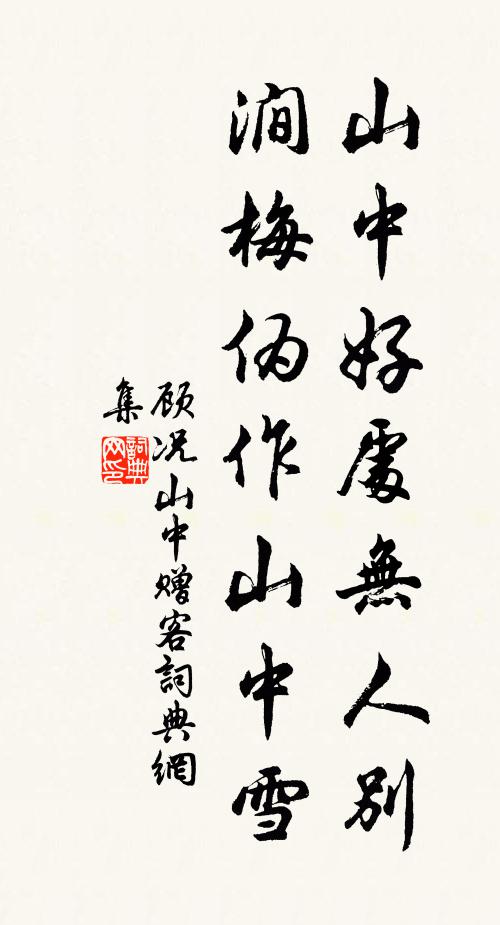 山中好處無人別
澗梅偽作山中雪
顾况山中贈客詞典網
集
詞典網印